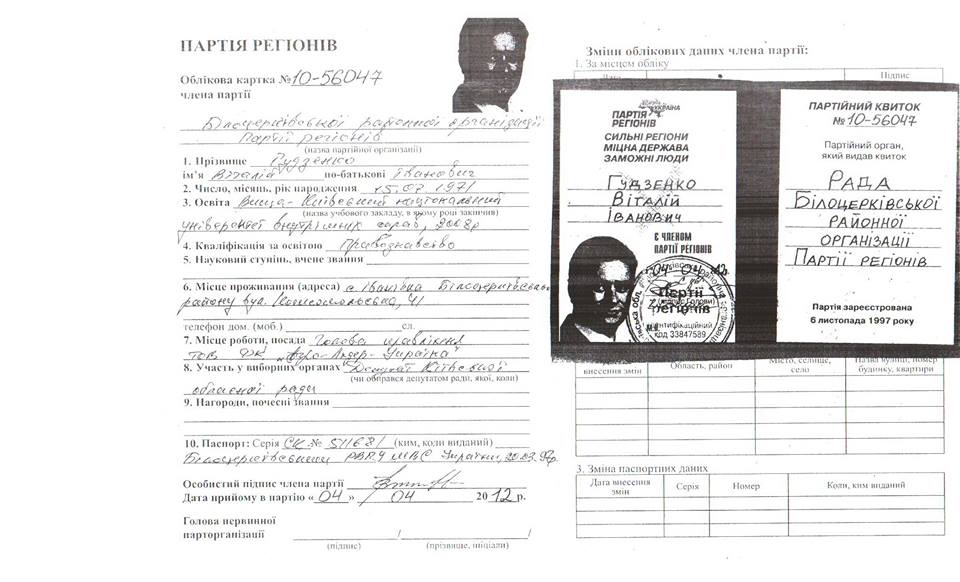 ПАРТІЯ РЕГІОНІВ
Облікова картка № 10-56047
члена партії
Білоцерківської районної організації
Партії регіонів
(назва партійної організації)
1. Прізвище Гудзенко
ім'я Віталій по-батькові Іванович
2. Число, місяць, рік народження 15.07 1971
3. Освіта Вища - Київський національний
(назва учбового закладу, в якому році закінчив)
університет внутрішніх справ, 2008р
4. Кваліфікація за освітою Правознавство
5. Науковий ступінь, вчене звання
6. Місце проживання (адреса) с. Іванівка Білоцерківського
району вул. Комсомольська, 41
телефон дом. (моб.) сл.
7. Місце роботи, посада Голова правління
ТОВ ФК "Агро-Лідер-Україна"
8. Участь у виборних органах Депутат Київської
(чи обирався депутатом ради, якої, коли)
обласної ради
9. Нагороди, почесні звання
10. Паспорт: Серія СК № 511681 (ким, коли виданий)
Білоцерківським РВ МВС України, 20.03.97р.
Особистий підпис члена партії
Дата прийому в партію « 04 » 04 2012 р.
Голова первинної
парторганізації
(підпис) (прізвище, ініціали)
Зміни облікових даних члена партії:
1. За місцем обліку
Дата Підпис
ПАРТІЯ
РЕГІОНІВ
УКРАЇНА
СИЛЬНІ РЕГІОНИ
МІЦНА ДЕРЖАВА
ЗАМОЖНІ ЛЮДИ
ГУДЗЕНКО
ВІТАЛІЙ
ІВАНОВИЧ
Є ЧЛЕНОМ
ПАРТІЇ РЕГІОНІВ
04 04 12
Партії
регіонів
ідентифікаційний
код 33847589
ПАРТІЙНИЙ КВИТОК
№ 10-56047
Партійний орган,
який видав квиток
РАДА
БІЛОЦЕРКІВСЬКОЇ
РАЙОННОЇ
ОРГАНІЗАЦІЇ
ПАРТІЇ РЕГІОНІВ
Партія зареєстрована
6 листопада 1997 року
внесення змін
Область, район
Місто, селище,
село
Назва вулиці, номер
будинку, квартири
3. Зміна паспортних даних
Дата внесення
змін
Серія
Номер
Коли, ким виданий